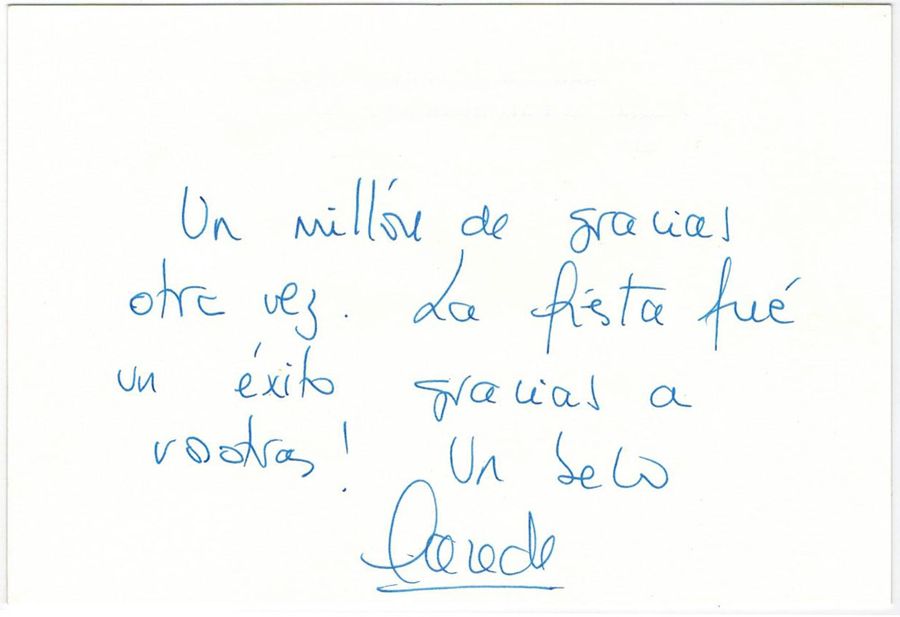 Un millón de gracias
otra vez. La fiesta fué
un éxito gracias a
vosotras! Un beso